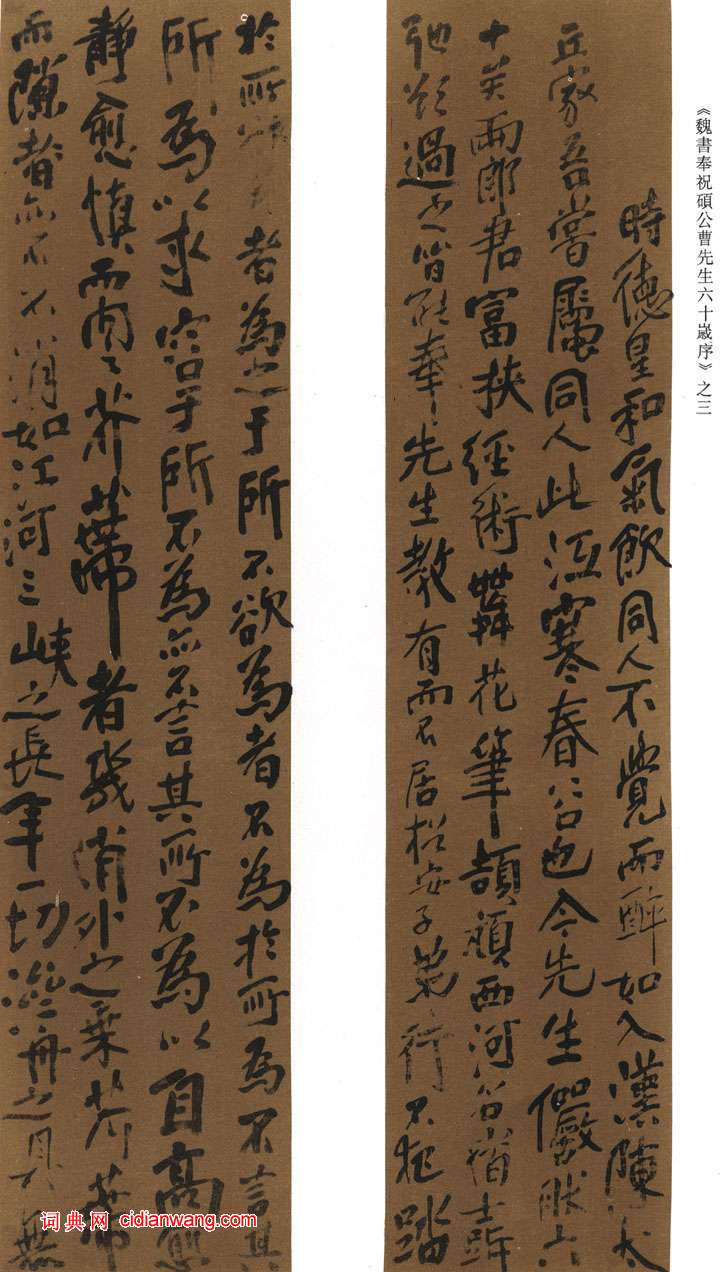 《魏書奉祝碩公曹先生六十歲序》之三
時德星和氣飲同人不覺而醉如入漢陳太
丘家吾嘗屬同人此江寒春公也今先生儼然六
十矣兩郎君富挾經術舞花筆頡頏西河
過之皆能奉先生教有而不居松安子弟行不犯
於所者為之于所不欲為者不為於所為不言其
所為以求容于所不為亦不言其所不為以自高愈
靜愈慎而芥蒂者幾消外之乘芥蒂
而隙者亦不消如江河三峽之長年一切濟舟之具無
词典网 cidianwang.com